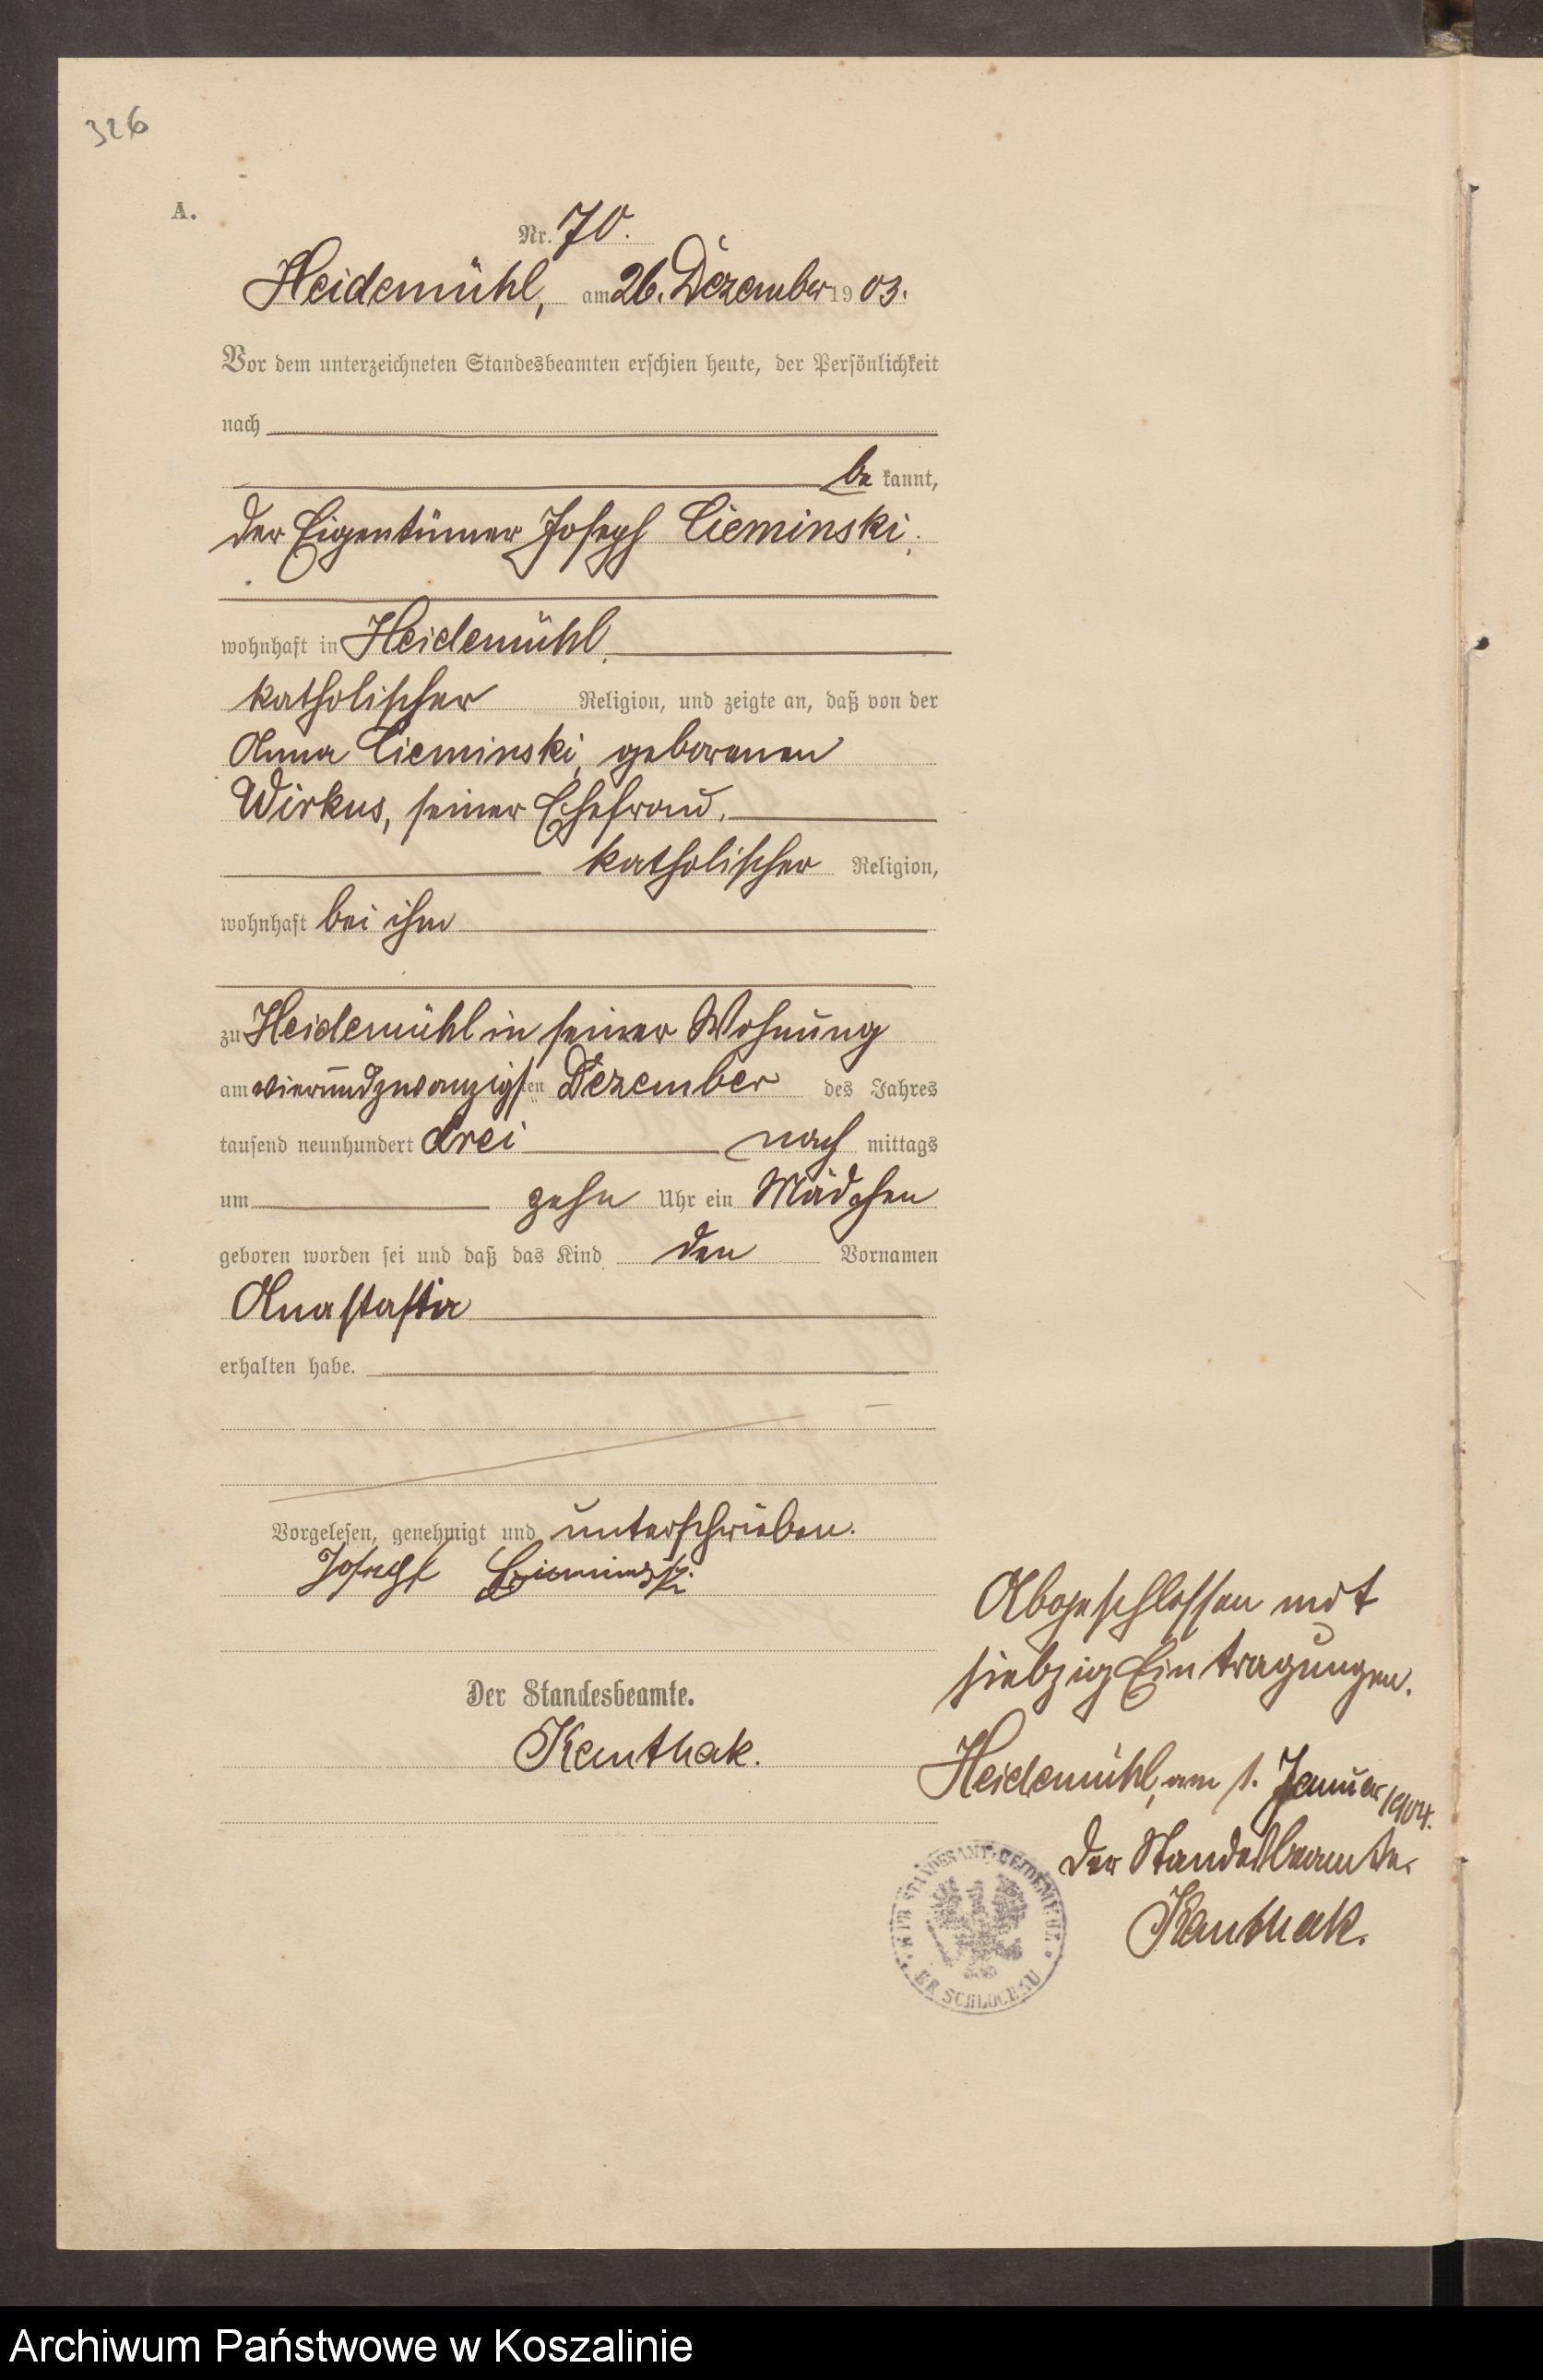 326
A.
Nr. 70.
Heidemühl, am 26. Dezember 1903.
Vor dem unterzeichneten Standesbeamten erschien heute, der Persönlichkeit
nach
be kannt,
der Eigentümer Joseph Cieminski,
wohnhaft in Heidemühl,
katholischer Religion, und zeigte an, daß von der
Anna Cieminski, geborenen
Wirkus, seiner Ehefrau,
katholischer Religion,
wohnhaft bei ihm
zu Heidemühl in seiner Wohnung
am vierundzwanzigsten Dezember des Jahres
tausend neunhundert drei nach mittags
um zehn Uhr ein Mädchen
geboren worden sei und daß das Kind den Vornamen
Anastasia
erhalten habe.
Vorgelesen, genehmigt und unterschrieben.
Joseph Cieminski
Der Standesbeamte.
Kanthak.
Abgeschlossen mit
siebzig Eintragungen.
Heidemühl, am 1. Januar 1904.
Der Standesbeamte.
Kanthak.
STANDESAMT HEIDEMÜHL
KR SCHLOCHAU
Archiwum Państwowe w Koszalinie